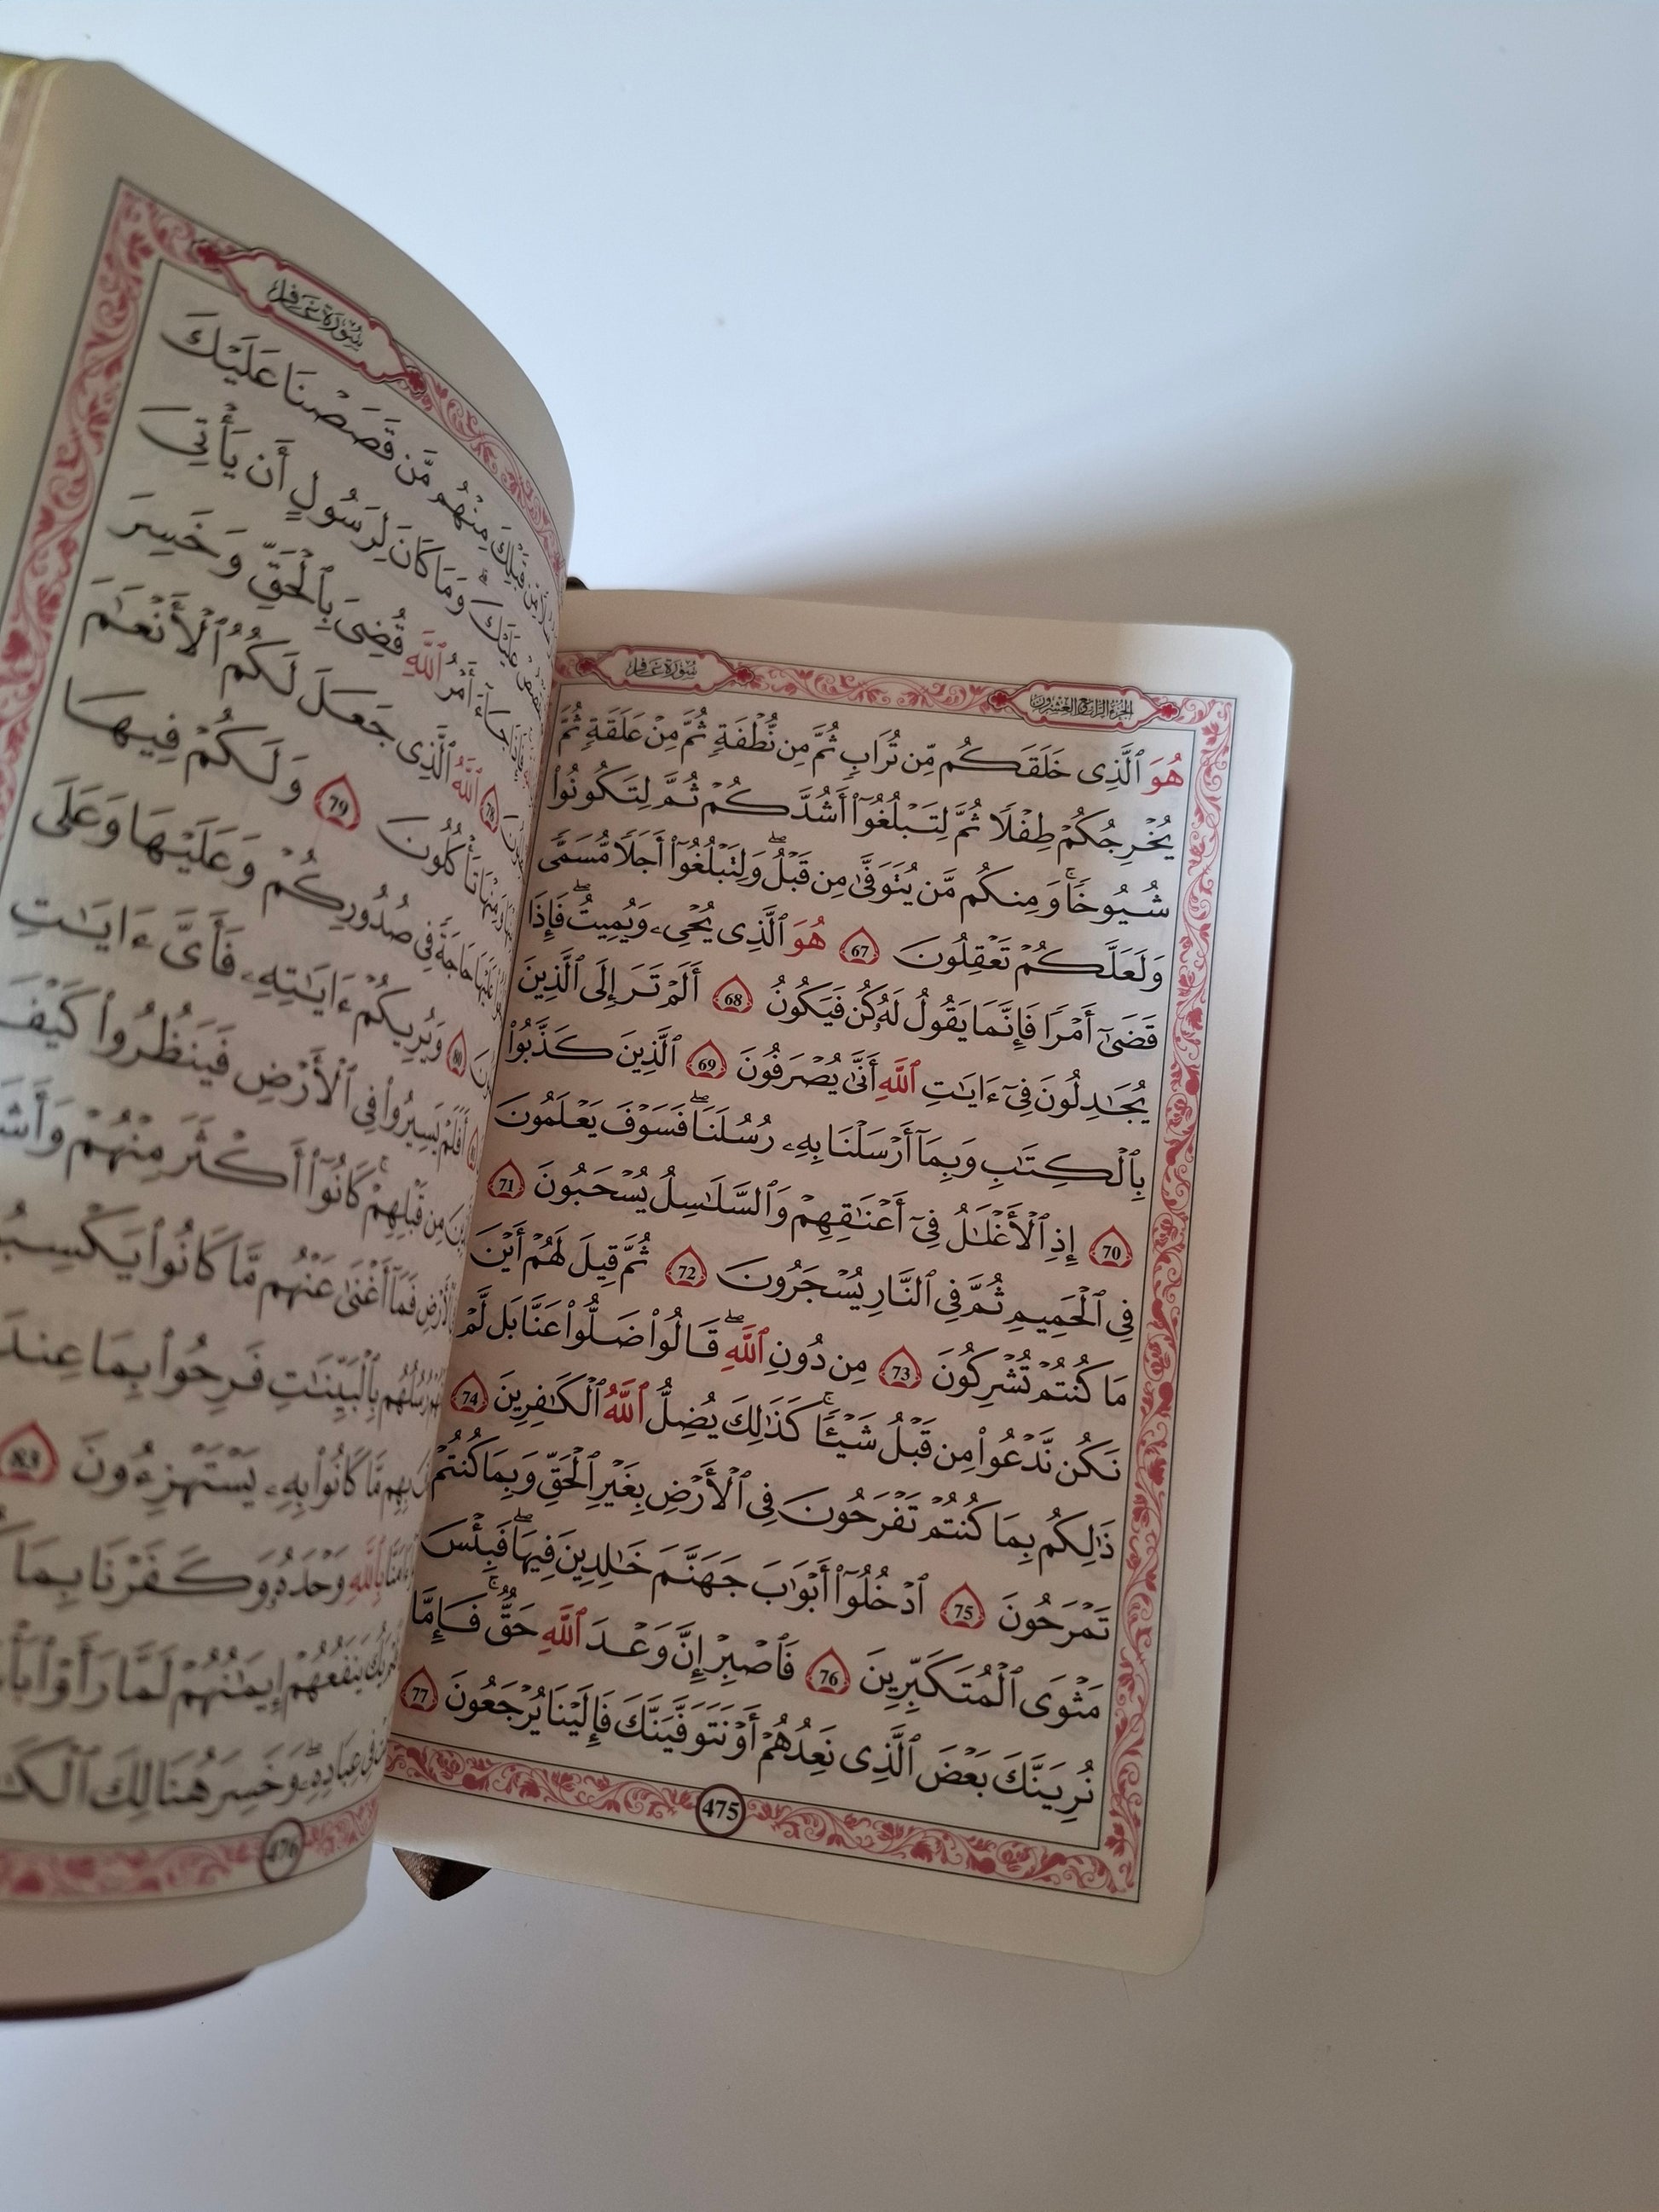 الجزء الرابع والعشرون
سُورَةُ غَافِر
هُوَ ٱلَّذِى خَلَقَكُم مِّن تُرَابٍ ثُمَّ مِن نُّطْفَةٍ ثُمَّ مِنْ عَلَقَةٍ ثُمَّ
يُخْرِجُكُمْ طِفْلًا ثُمَّ لِتَبْلُغُوٓا۟ أَشُدَّكُمْ ثُمَّ لِتَكُونُوا۟
شُيُوخًا ۚ وَمِنكُم مَّن يُتَوَفَّىٰ مِن قَبْلُ ۖ وَلِتَبْلُغُوٓا۟ أَجَلًا مُّسَمًّى
وَلَعَلَّكُمْ تَعْقِلُونَ 67 هُوَ ٱلَّذِى يُحْىِۦ وَيُمِيتُ ۖ فَإِذَا
قَضَىٰٓ أَمْرًا فَإِنَّمَا يَقُولُ لَهُۥ كُن فَيَكُونُ 68 أَلَمْ تَرَ إِلَى ٱلَّذِينَ
يُجَٰدِلُونَ فِىٓ ءَايَٰتِ ٱللَّهِ أَنَّىٰ يُصْرَفُونَ 69 ٱلَّذِينَ كَذَّبُوا۟
بِٱلْكِتَٰبِ وَبِمَآ أَرْسَلْنَا بِهِۦ رُسُلَنَا ۖ فَسَوْفَ يَعْلَمُونَ
70 إِذِ ٱلْأَغْلَٰلُ فِىٓ أَعْنَٰقِهِمْ وَٱلسَّلَٰسِلُ يُسْحَبُونَ 71
فِى ٱلْحَمِيمِ ثُمَّ فِى ٱلنَّارِ يُسْجَرُونَ 72 ثُمَّ قِيلَ لَهُمْ أَيْنَ
مَا كُنتُمْ تُشْرِكُونَ 73 مِن دُونِ ٱللَّهِ ۖ قَالُوا۟ ضَلُّوا۟ عَنَّا بَل لَّمْ
نَكُن نَّدْعُوا۟ مِن قَبْلُ شَيْـًٔا ۚ كَذَٰلِكَ يُضِلُّ ٱللَّهُ ٱلْكَٰفِرِينَ 74
ذَٰلِكُم بِمَا كُنتُمْ تَفْرَحُونَ فِى ٱلْأَرْضِ بِغَيْرِ ٱلْحَقِّ وَبِمَا كُنتُمْ
تَمْرَحُونَ 75 ٱدْخُلُوٓا۟ أَبْوَٰبَ جَهَنَّمَ خَٰلِدِينَ فِيهَا ۖ فَبِئْسَ
مَثْوَى ٱلْمُتَكَبِّرِينَ 76 فَٱصْبِرْ إِنَّ وَعْدَ ٱللَّهِ حَقٌّ ۚ فَإِمَّا
نُرِيَنَّكَ بَعْضَ ٱلَّذِى نَعِدُهُمْ أَوْ نَتَوَفَّيَنَّكَ فَإِلَيْنَا يُرْجَعُونَ 77
475
سُورَةُ غَافِر
مِّن قَبْلِكَ مِنْهُم مَّن قَصَصْنَا عَلَيْكَ
عَلَيْكَ ۗ وَمَا كَانَ لِرَسُولٍ أَن يَأْتِىَ
جَآءَ أَمْرُ ٱللَّهِ قُضِىَ بِٱلْحَقِّ وَخَسِرَ
78 ٱللَّهُ ٱلَّذِى جَعَلَ لَكُمُ ٱلْأَنْعَٰمَ
وَمِنْهَا تَأْكُلُونَ 79 وَلَكُمْ فِيهَا
عَلَيْهَا حَاجَةً فِى صُدُورِكُمْ وَعَلَيْهَا وَعَلَى
80 وَيُرِيكُمْ ءَايَٰتِهِۦ فَأَىَّ ءَايَٰتِ
أَفَلَمْ يَسِيرُوا۟ فِى ٱلْأَرْضِ فَيَنظُرُوا۟ كَيْفَ
مِن قَبْلِهِمْ ۚ كَانُوٓا۟ أَكْثَرَ مِنْهُمْ
فَمَآ أَغْنَىٰ عَنْهُم مَّا كَانُوا۟
رُسُلُهُم بِٱلْبَيِّنَٰتِ فَرِحُوا۟ بِمَا
بِهِم مَّا كَانُوا۟ بِهِۦ يَسْتَهْزِءُونَ 83
بِٱللَّهِ وَحْدَهُۥ وَكَفَرْنَا بِمَا
يَنفَعُهُمْ إِيمَٰنُهُمْ لَمَّا رَأَوْا۟
فِى عِبَادِهِۦ ۖ وَخَسِرَ هُنَالِكَ
476